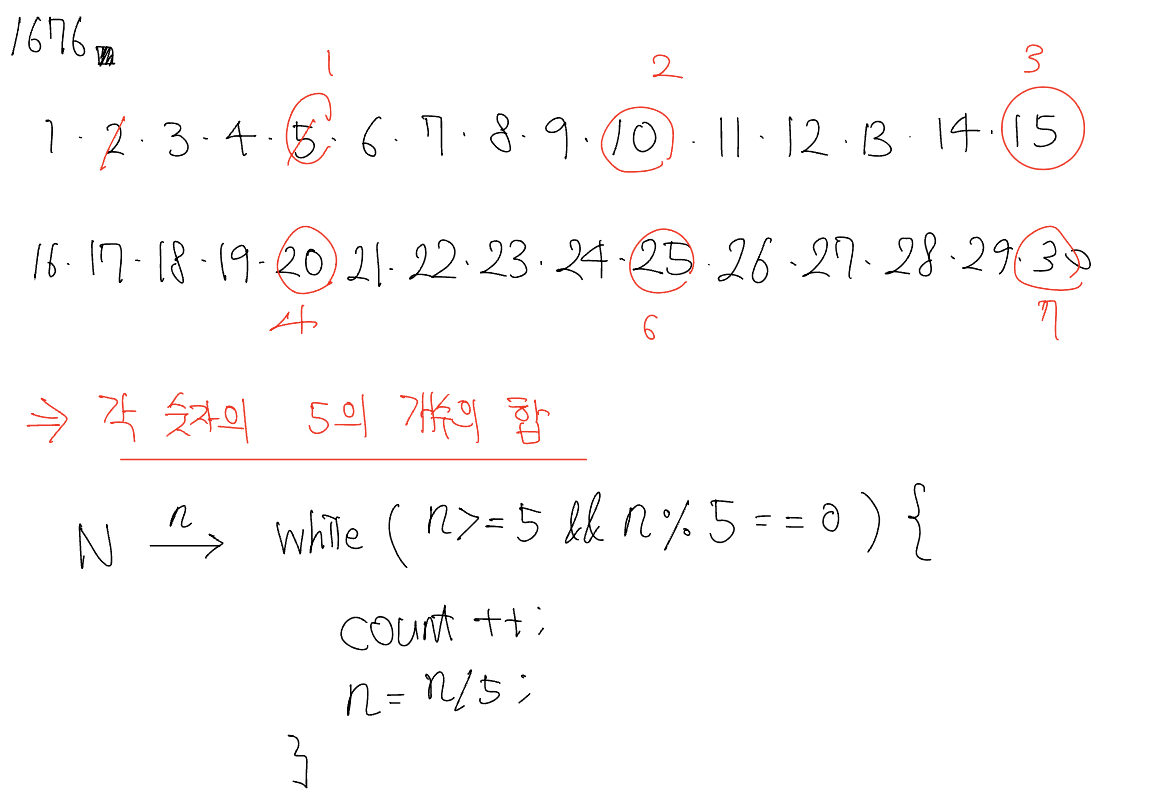 1676
1 2 3
1 · 2 · 3 · 4 · 5 · 6 · 7 · 8 · 9 · 10 · 11 · 12 · 13 · 14 · 15
16 · 17 · 18 · 19 · 20 21 · 22 · 23 · 24 · 25 · 26 · 27 · 28 · 29 · 30
4 6 7
⇒ 각 숫자의 5의 개수의 합
N →n while ( n>=5 && n%5==0 ) {
count ++;
n = n/5;
}